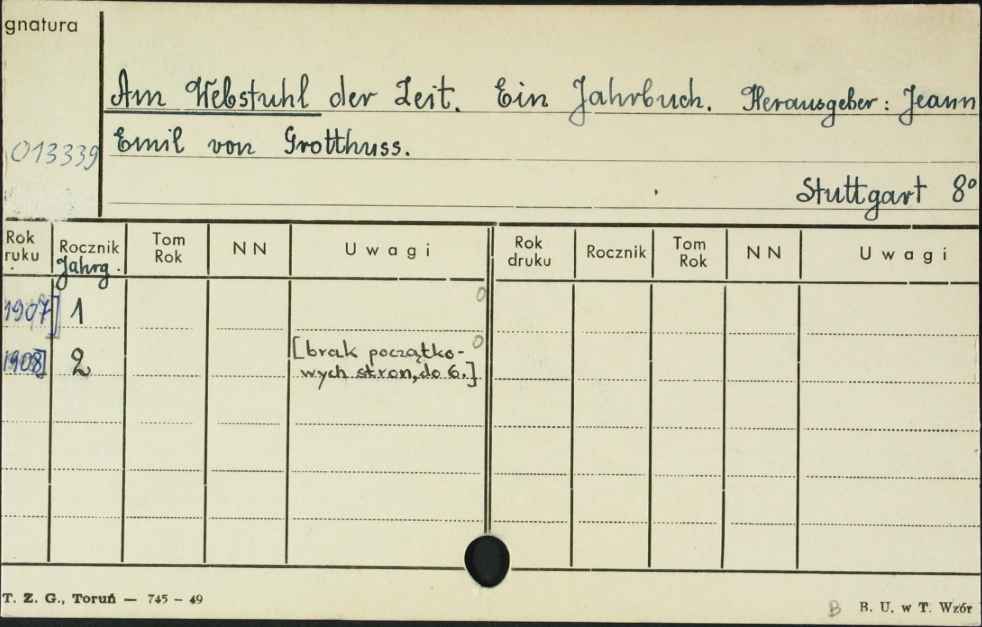 gnatura
Am Webstuhl der Zeit. Ein Jahrbuch. Herausgeber: Jeann
013339 Emil von Grotthuss.
Stuttgart 8°
Rok ruku Rocznik Jahrg. Tom Rok NN Uwagi Rok druku Rocznik Tom Rok NN Uwagi
1907] 1 0
1908] 2 [brak początko- 0
wych stron, do 6.]
T. Z. G., Toruń — 745 - 49
B B. U. w T. Wzór